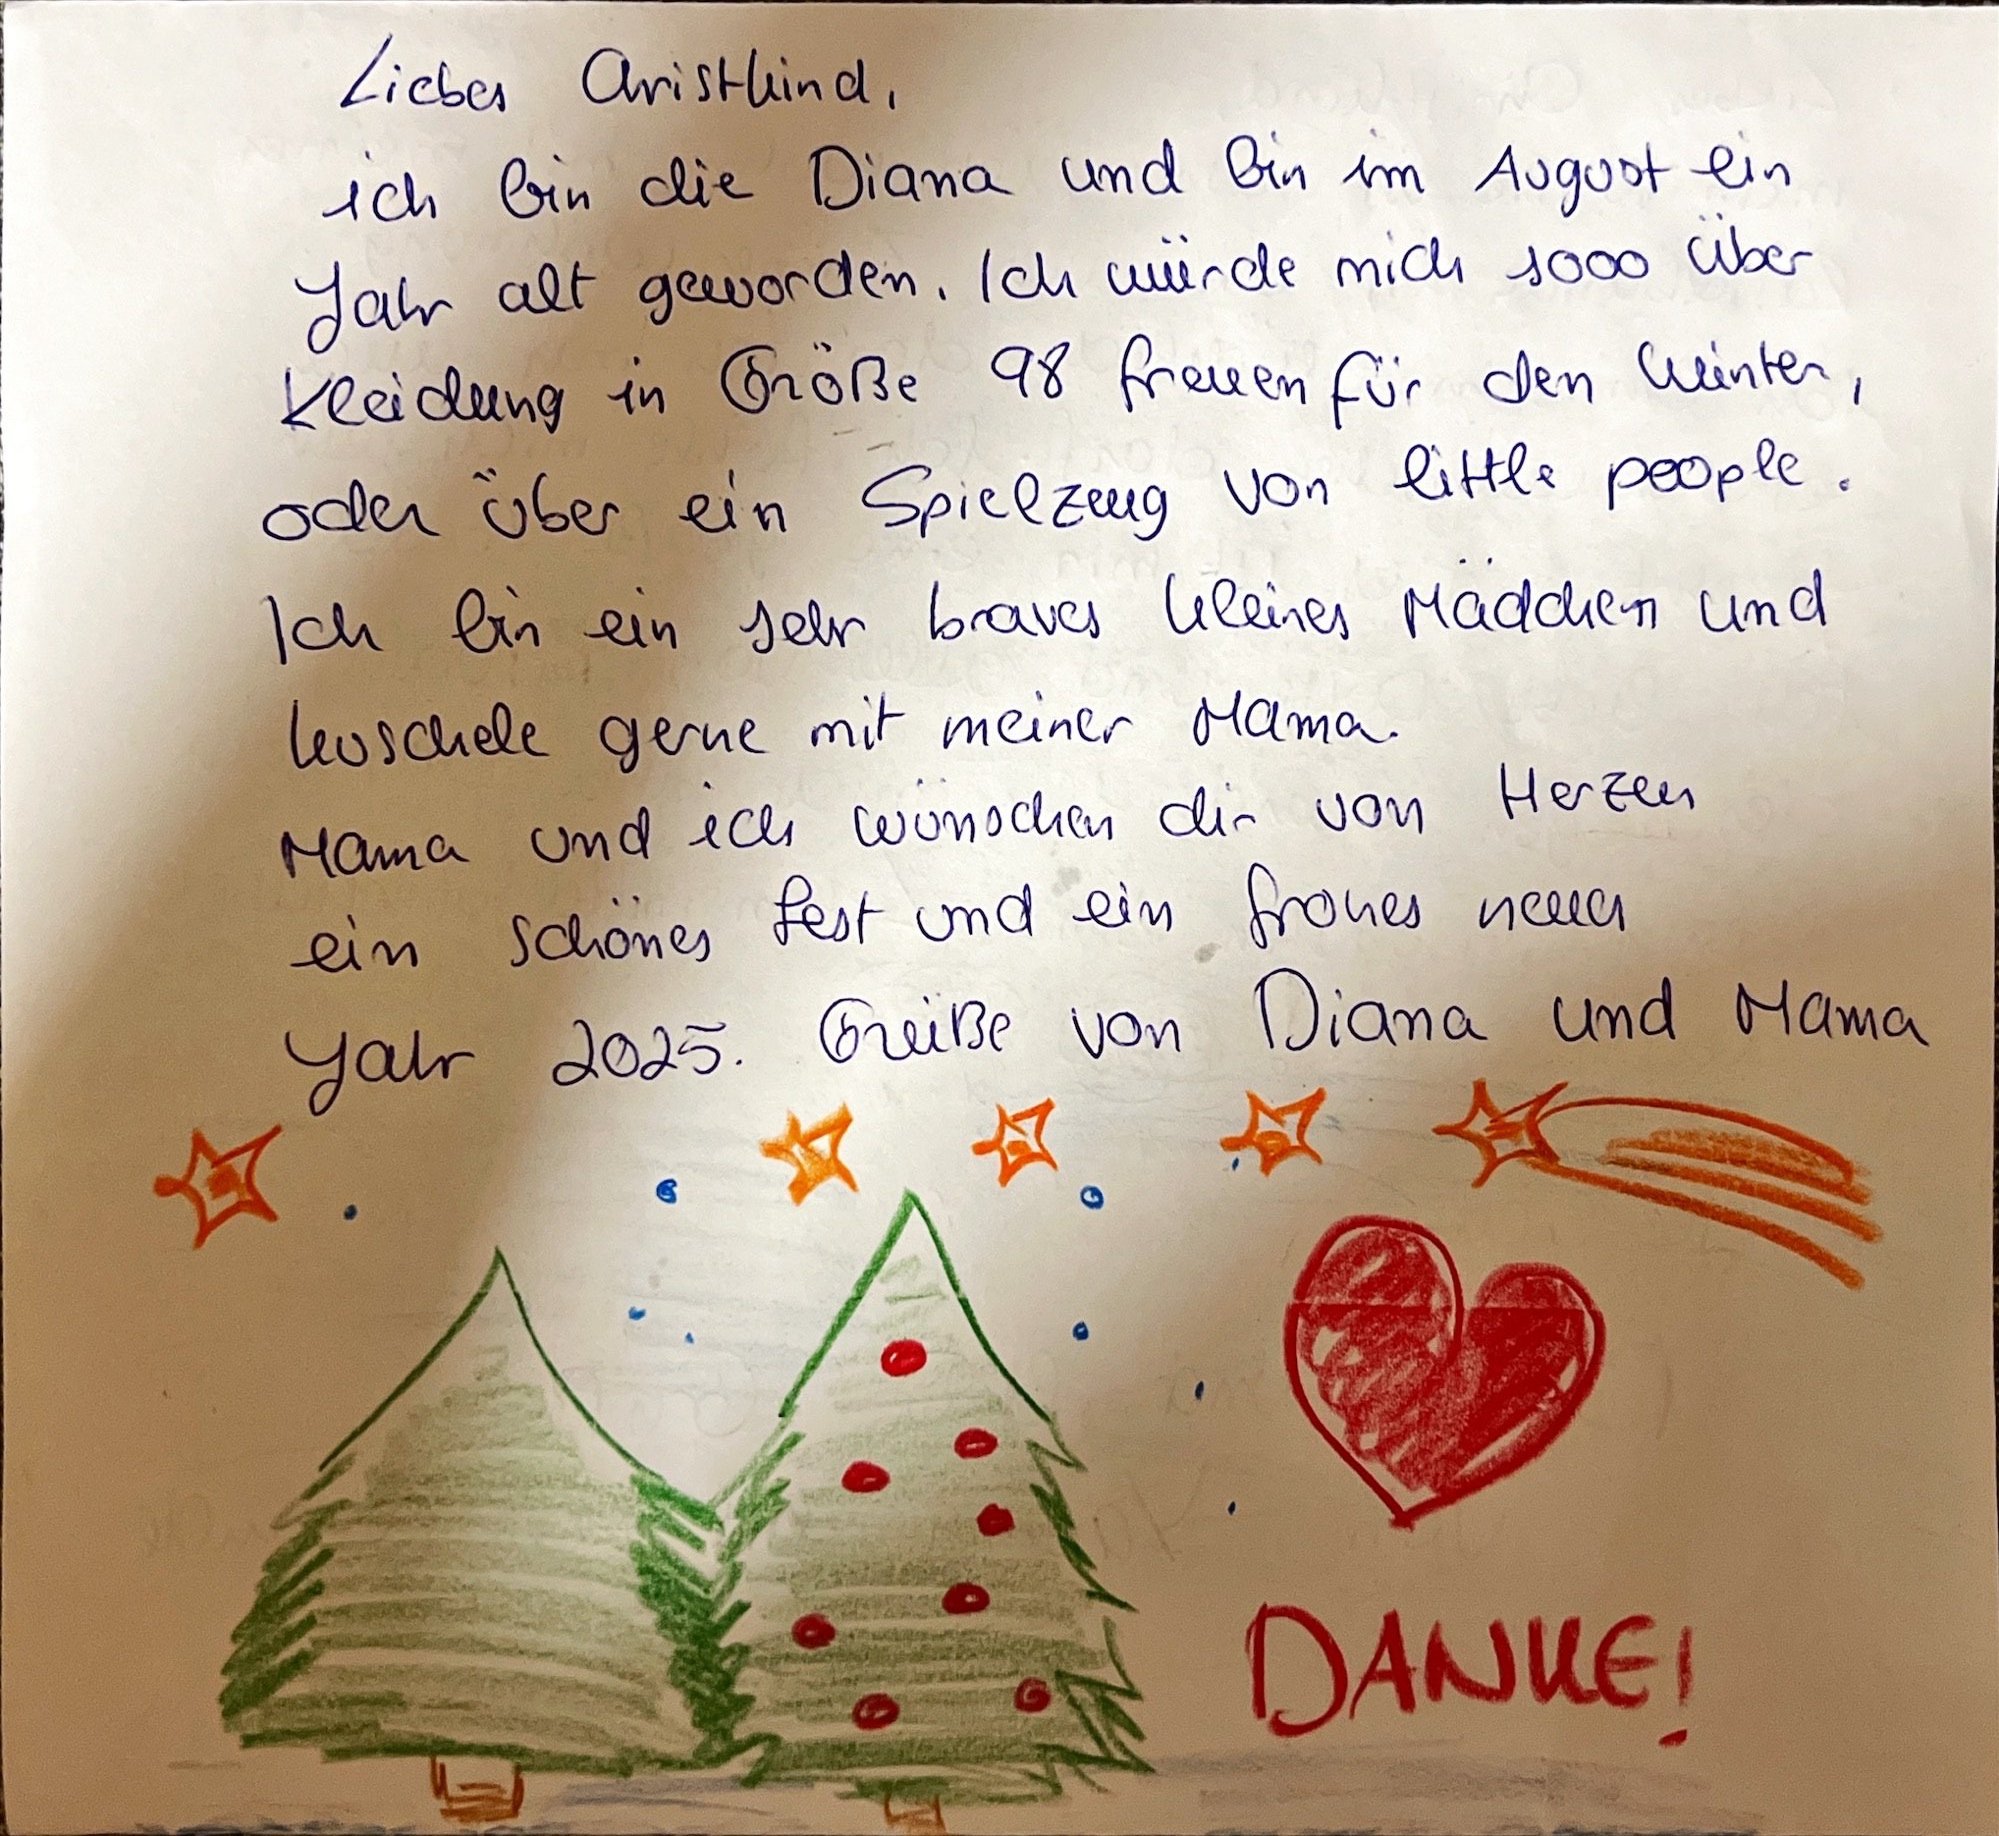 Liebes Christkind,
ich bin die Diana und bin im August ein
Jahr alt geworden. Ich würde mich sooo über
Kleidung in Größe 98 freuen für den Winter,
oder über ein Spielzeug von little people.
Ich bin ein sehr braves kleines Mädchen und
kuschele gerne mit meiner Mama.
Mama und ich wünschen dir von Herzen
ein schönes Fest und ein frohes neues
Jahr 2025. Grüße von Diana und Mama
DANKE!